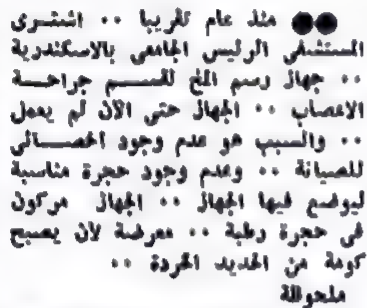 ●● منذ عام تقريبا ٠٠ اشترى
المستشفى الرئيسى الجامعى بالاسكندرية
٠٠ جهاز رسم المخ لقسم جراحة
الاعصاب ٠٠ الجهاز حتى الآن لم يعمل
٠٠ والسبب هو عدم وجود اخصائى
للصيانة ٠٠ وعدم وجود حجرة مناسبة
ليوضع فيها الجهاز ٠٠ الجهاز مركون
فى حجرة رطبة ٠٠ معرضة لان يصبح
كومة من الحديد الخردة ٠٠
ملحوظة